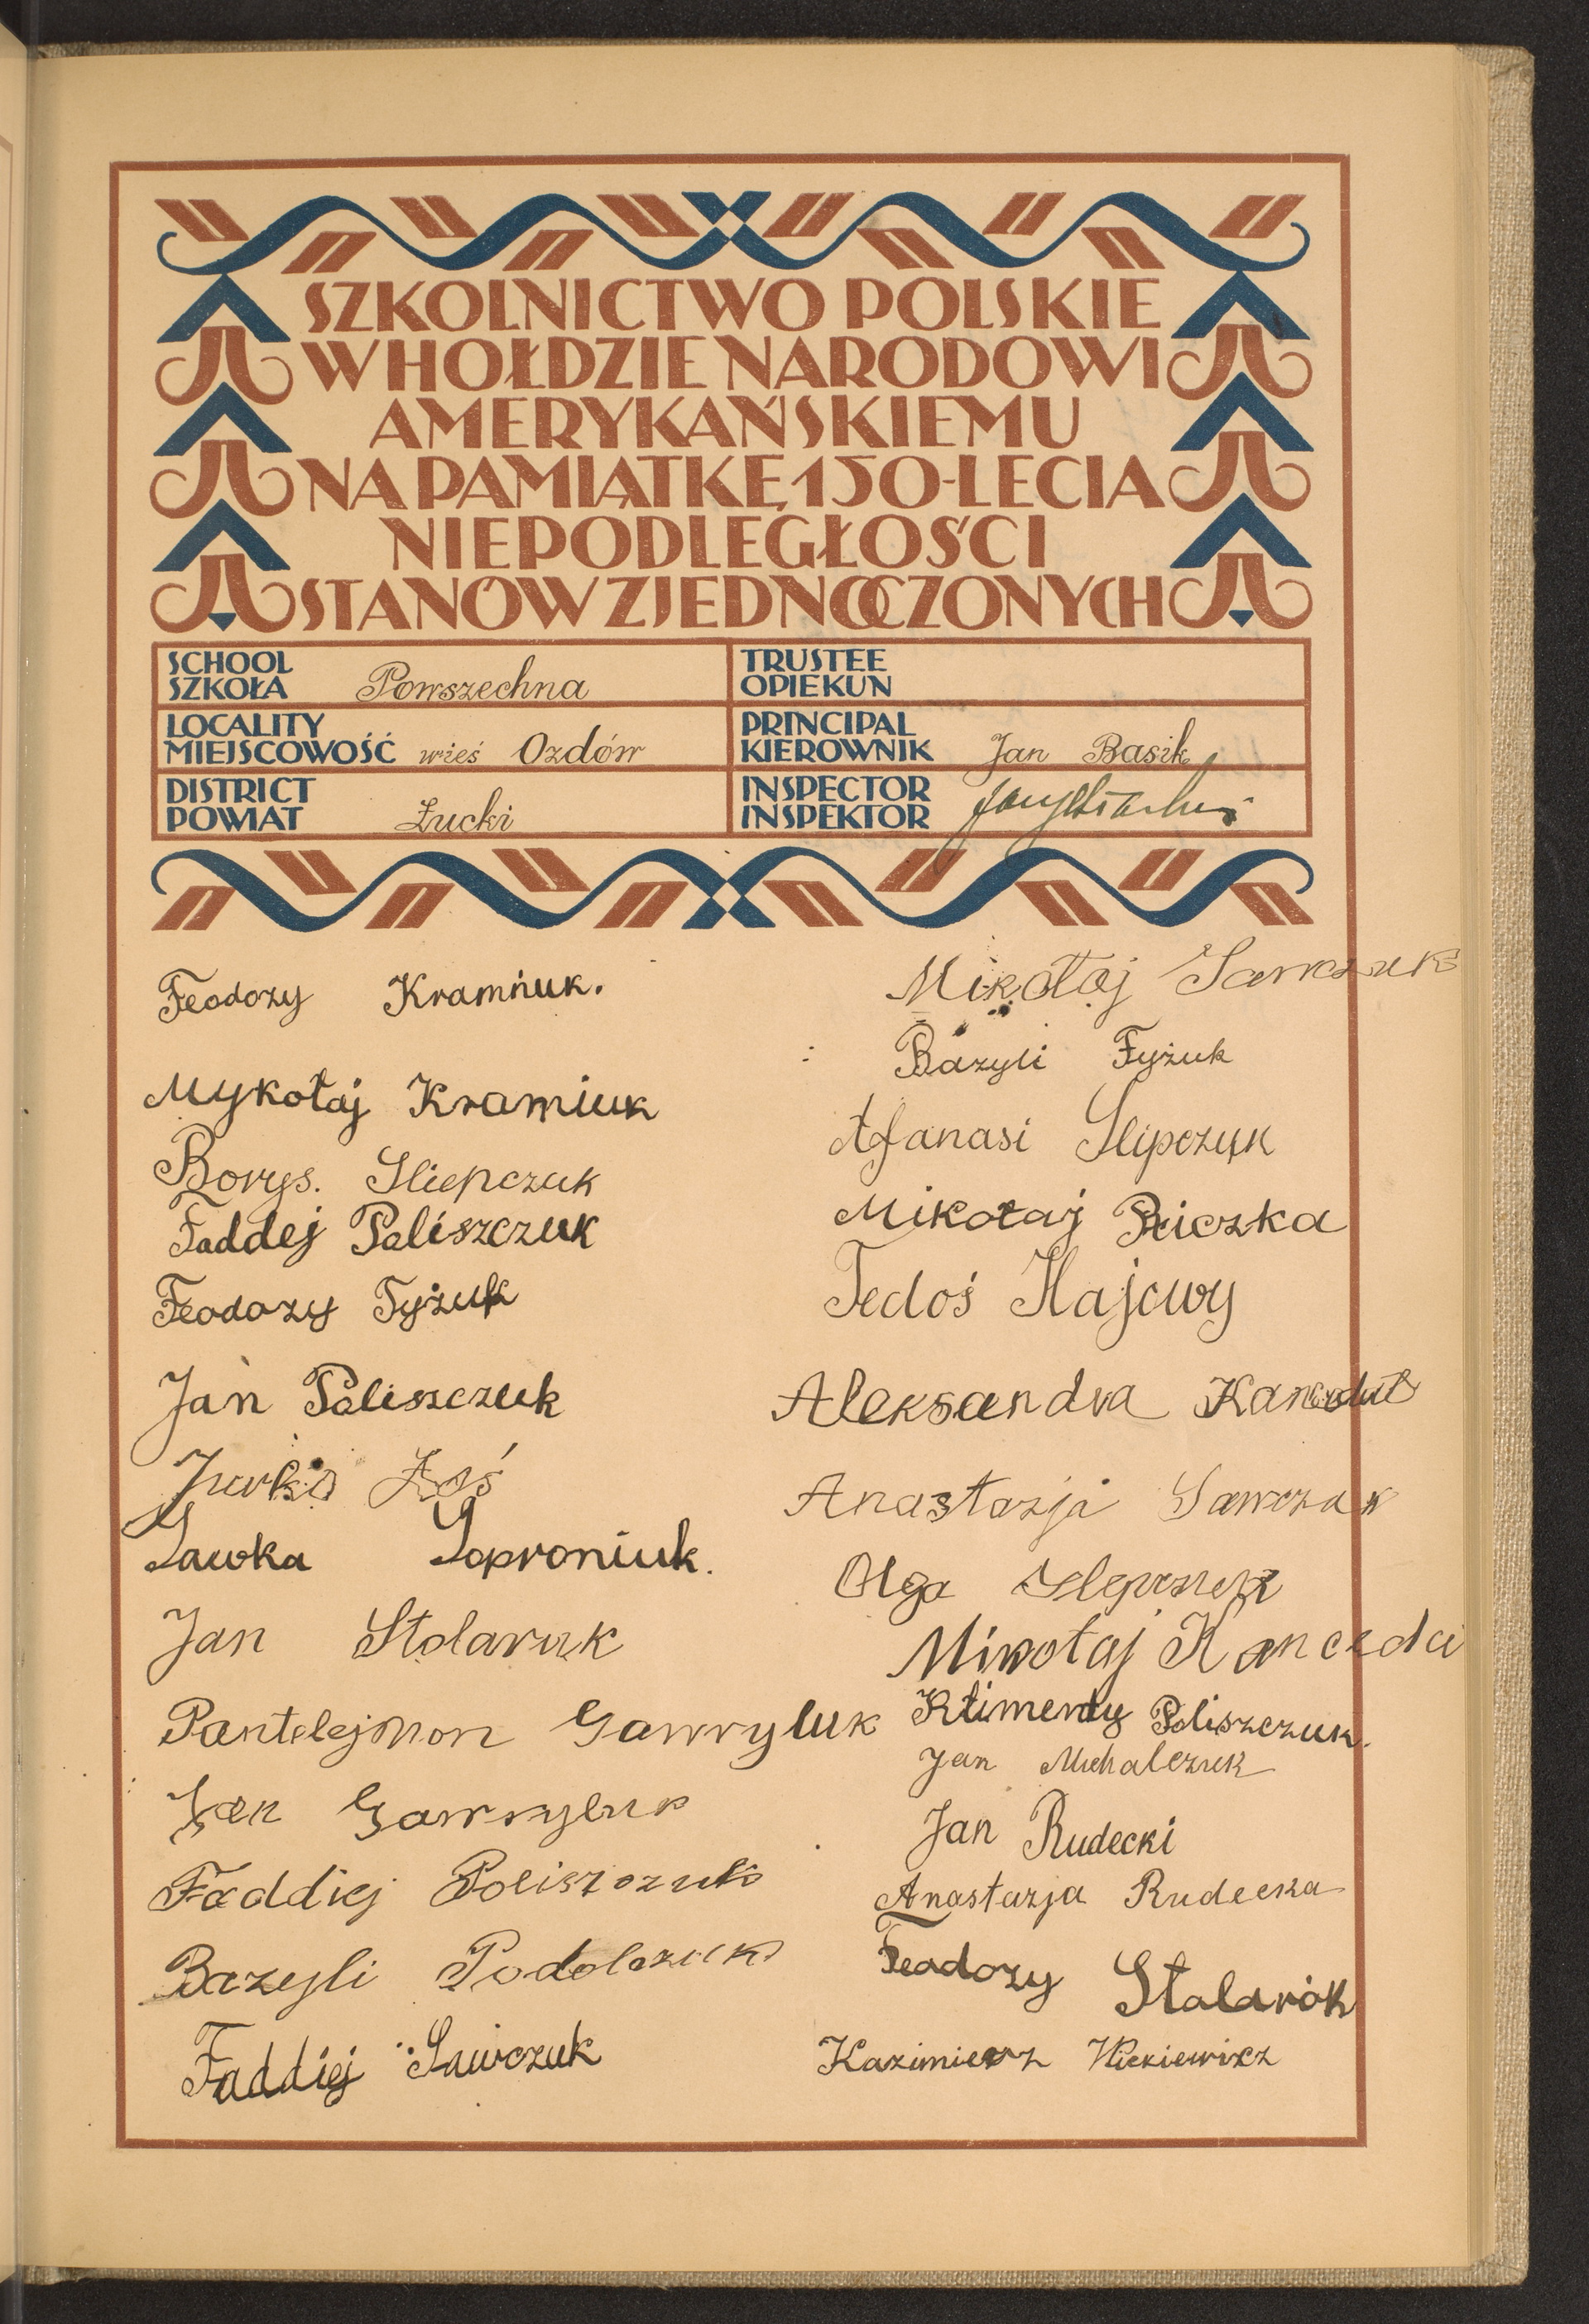 SZKOLNICTWO POLSKIE
W HOŁDZIE NARODOWI
AMERYKAŃSKIEMU
NA PAMIĄTKĘ 150-LECIA
NIEPODLEGŁOŚCI
STANÓW ZJEDNOCZONYCH
SCHOOL
SZKOŁA Powszechna
TRUSTEE
OPIEKUN
LOCALITY
MIEJSCOWOŚĆ wieś Ozdów
PRINCIPAL
KIEROWNIK Jan Basik
DISTRICT
POWIAT Łucki
INSPECTOR
INSPEKTOR
Feodozy Kramiuk.
Mykołaj Kramiuk
Borys. Sliepczuk
Faddej Paliszczuk
Feodozy Tyżuk
Jan Paliszczuk
Jurko Łoś
Sawka Soproniuk.
Jan Stolaruk
Pantelejmon Gawryluk
Jan Gawryluk
Faddiej Poliszczuk
Bazyli Podolczuk
Faddiej Sawczuk
Mikołaj Sawczuk
Bazyli Fyżuk
Afanasi Slipczuk
Mikołaj Priczka
Fedoś Hajowy
Aleksandra
Anastazja Sawczuk
Olga Slepczuk
Mikołaj Kanceda
Klimenty Poliszczuk.
Jan Michalczuk
Jan Rudecki
Anastazja Rudecka
Feodozy Stalarók
Kazimierz